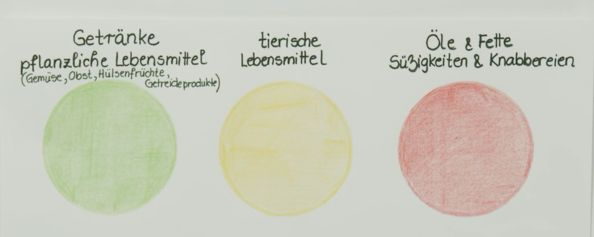 Getränke
pflanzliche Lebensmittel
(Gemüse, Obst, Hülsenfrüchte,
Getreideprodukte)
tierische
Lebensmittel
Öle & Fette
Süßigkeiten & Knabbereien